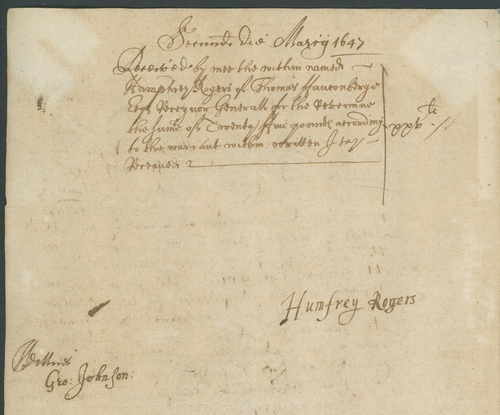 Secundo die Marcij 1647
Received by mee the within named
Humphrey Rogers of Thomas Fauconberge
Esqr Receivor Generall for the Revennue
the sume of Twenty five pounds according
to the warrant within written I say
Received
xxv li
Humfrey Rogers
Wittnes
Geo: Johnson: